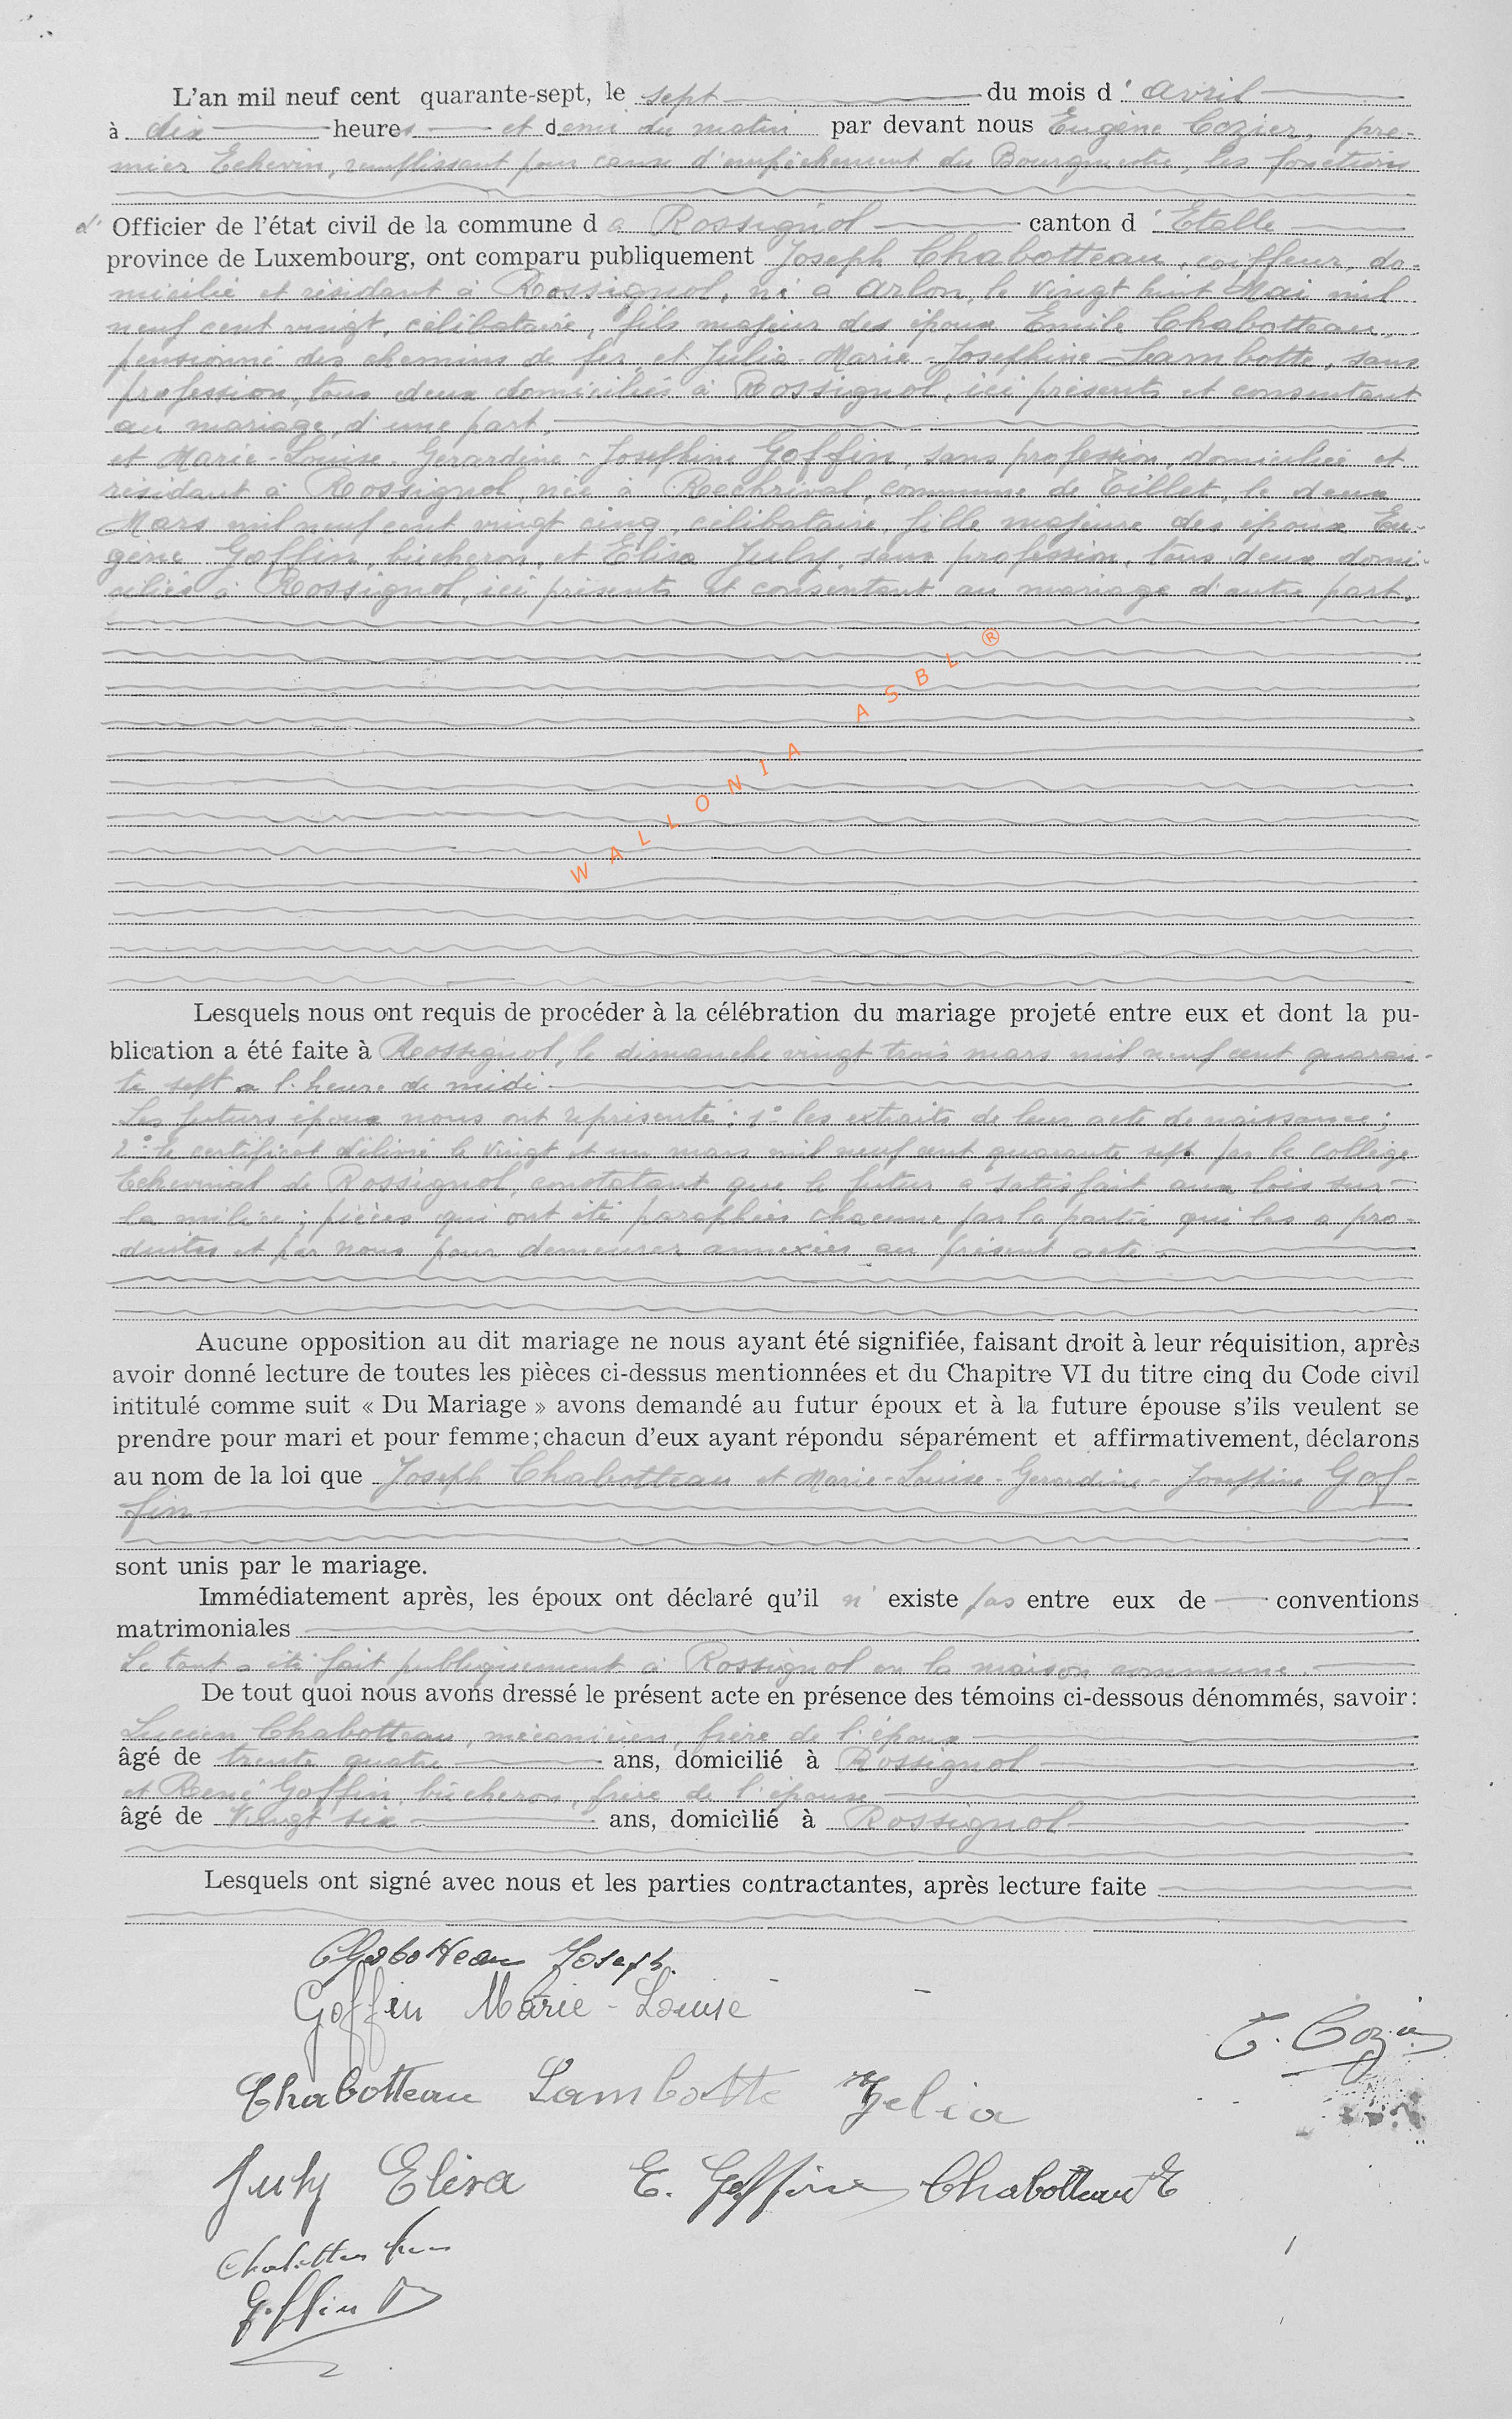 L'an mil neuf cent quarante-sept, le sept du mois d'Avril
à dix heures et demi du matin par devant nous Eugène Cozier, pre-
mier Echevin, remplissant pour cause d'empêchement du Bourgmestre, les fonctions
d' Officier de l'état civil de la commune de Rossignol canton d'Etalle
province de Luxembourg, ont comparu publiquement Joseph Chabotteau, coiffeur, do-
micilié et résidant à Rossignol, né à Arlon, le vingt huit Mai mil
neuf cent vingt, célibataire, fils majeur des époux Emile Chabotteau,
pensionné des chemins de fer, et Julia-Marie-Josephine Lambotte, sans
profession, tous deux domiciliés à Rossignol, ici présents et consentant
au mariage, d'une part,
et Marie-Louise-Gerardine-Josephine Goffin, sans profession, domiciliée et
résidant à Rossignol, née à Rechrival, commune de Tillet, le deux
Mars mil neuf cent vingt cinq, célibataire, fille majeure des époux Eu-
gène Goffin, bûcheron, et Elisa July, sans profession, tous deux domi-
ciliés à Rossignol, ici présents et consentant au mariage d'autre part.
WALLONIA ASBL ®
Lesquels nous ont requis de procéder à la célébration du mariage projeté entre eux et dont la pu-
blication a été faite à Rossignol, le dimanche vingt trois mars mil neuf cent quaran-
te sept à l'heure de midi.
Les futurs époux nous ont représenté : 1° les extraits de leur acte de naissance ;
2° le certificat délivré le vingt et un mars mil neuf cent quarante sept par le Collège
Echevinal de Rossignol, constatant que le futur a satisfait aux lois sur
la milice ; pièces qui ont été paraphées chacune par la partie qui les a pro-
duites et par nous pour demeurer annexées au présent acte.
Aucune opposition au dit mariage ne nous ayant été signifiée, faisant droit à leur réquisition, après
avoir donné lecture de toutes les pièces ci-dessus mentionnées et du Chapitre VI du titre cinq du Code civil
intitulé comme suit « Du Mariage » avons demandé au futur époux et à la future épouse s'ils veulent se
prendre pour mari et pour femme; chacun d'eux ayant répondu séparément et affirmativement, déclarons
au nom de la loi que Joseph Chabotteau et Marie-Louise-Gerardine-Josephine Gof-
fin
sont unis par le mariage.
Immédiatement après, les époux ont déclaré qu'il n'existe pas entre eux de conventions
matrimoniales
Le tout a été fait publiquement à Rossignol en la maison commune.
De tout quoi nous avons dressé le présent acte en présence des témoins ci-dessous dénommés, savoir :
Lucien Chabotteau, mécanicien, frère de l'époux
âgé de trente quatre ans, domicilié à Rossignol
et René Goffin, bûcheron, frère de l'épouse
âgé de vingt six ans, domicilié à Rossignol
Lesquels ont signé avec nous et les parties contractantes, après lecture faite
Chabotteau Joseph.
Goffin Marie-Louise
E. Cozier
Chabotteau Lambotte Julia
July Elisa E. Goffin Chabotteau E
Chabotteau
Goffin R